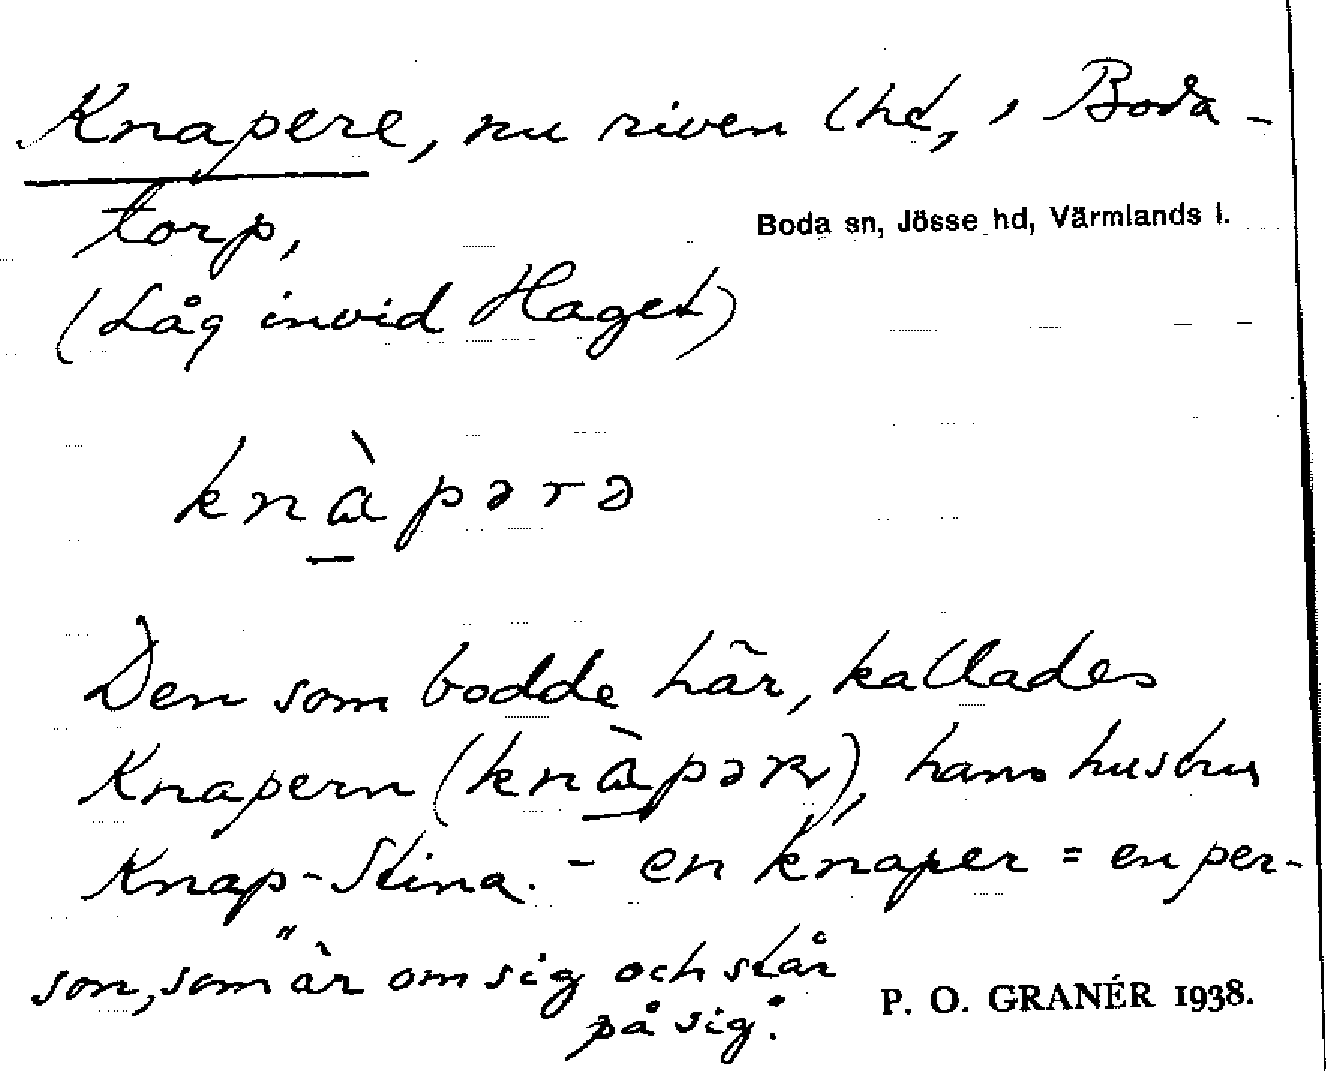 Knapere, nu riven lht, i Boda-
torp,
Boda sn, Jösse hd, Värmlands l.
(Låg invid Haget)
knàpərə
Den som bodde här, kallades
Knapern (knàpəɳ), hans hustru
Knap-Stina. - en knaper = en per-
son, som "är om sig och står
på sig".
P. O. GRANÉR 1938.